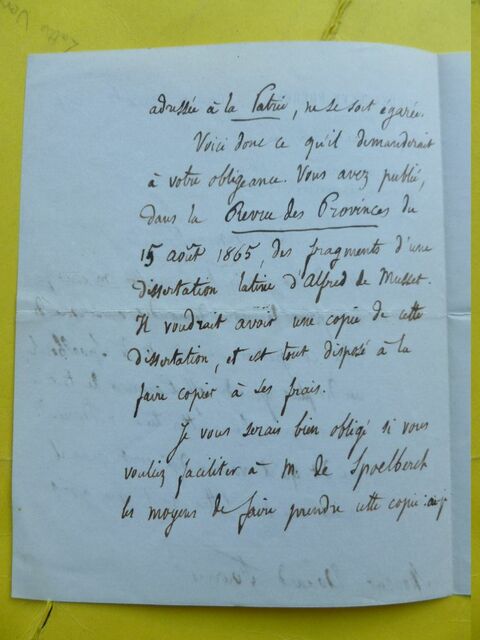 adressée à la Patrie, ne se soit égarée.
Voici donc ce qu'il demanderait
à votre obligeance. Vous avez publié,
dans la Revue des Provinces du
15 août 1865, des fragments d'une
dissertation latine d'Alfred de Musset.
Il voudrait avoir une copie de cette
dissertation, et est tout disposé à la
faire copier à ses frais.
Je vous serais bien obligé si vous
vouliez faciliter à M. de Spoelberch
les moyens de faire prendre cette copie :